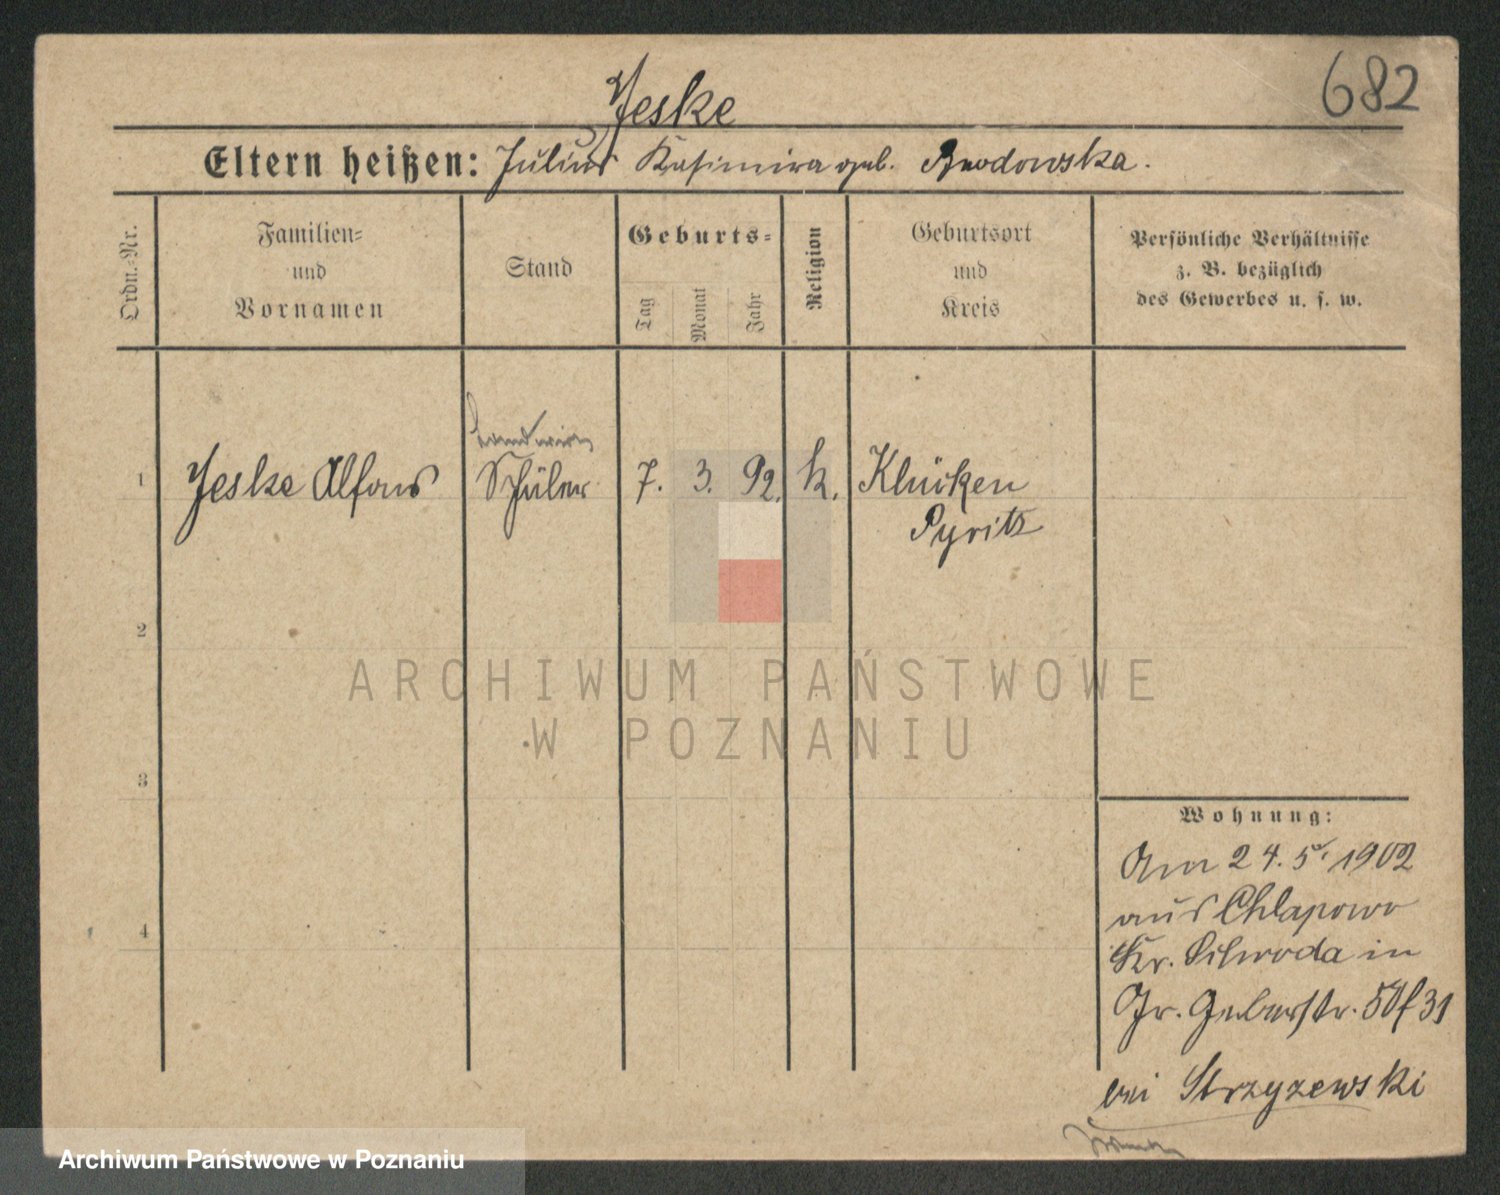 682
Jeske
Eltern heißen: Julius Kasimira geb. Brodowska.
Ordn.-Nr.
Familien-
und
Vornamen
Stand
Geburts-
Tag
Monat
Jahr
Religion
Geburtsort
und
Kreis
Persönliche Verhältnisse
z. B. bezüglich
des Gewerbes u. s. w.
Landwirt
1 Jeske Alfons Schüler 7. 3. 92. k. Klücken
Pyritz
2
3
4
ARCHIWUM PAŃSTWOWE
W POZNANIU
Wohnung:
Am 24. 5. 1902
aus Chlapowo
Kr. Schroda in
Gr. Gerberstr. 50 f 31
bei Strzyzewski
Archiwum Państwowe w Poznaniu